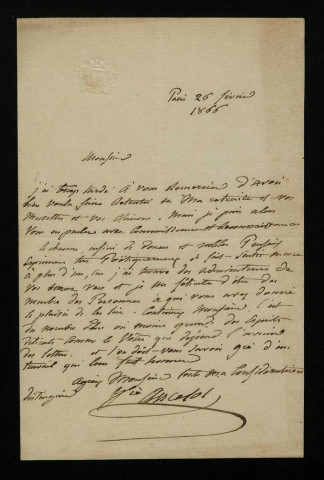 Paris 26 février
1866
Monsieur
j'ai trop tardé à vous remercier d'avoir
bien voulu faire retentir en ma retraite et vos
Musettes et vos clairons. Mais je puis alors
vous en parler avec connaissance et reconnaissance
infini de douces et nobles Pensées
exprimées très Poétiquement
à plus d'un, car j'ai trouvé des admirateurs de
vos beaux vers et je me félicite d'être du
nombre des Personnes à qui vous avez donné
le plaisir de les lire. Continuez Monsieur. C'est
du nombre plus ou moins grand des esprits
délicats comme le Vôtre que dépend l'avenir
des lettres. et l'on doit vous savoir gré d'un
travail qui leur fait honneur
Agréez Monsieur toute ma Considération
distinguée
Vie Ancelot